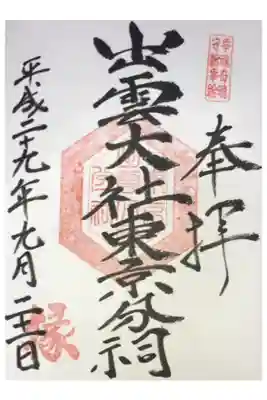 奉拝
出雲大社東京分祠
平成二十九年九月二十二日
縁